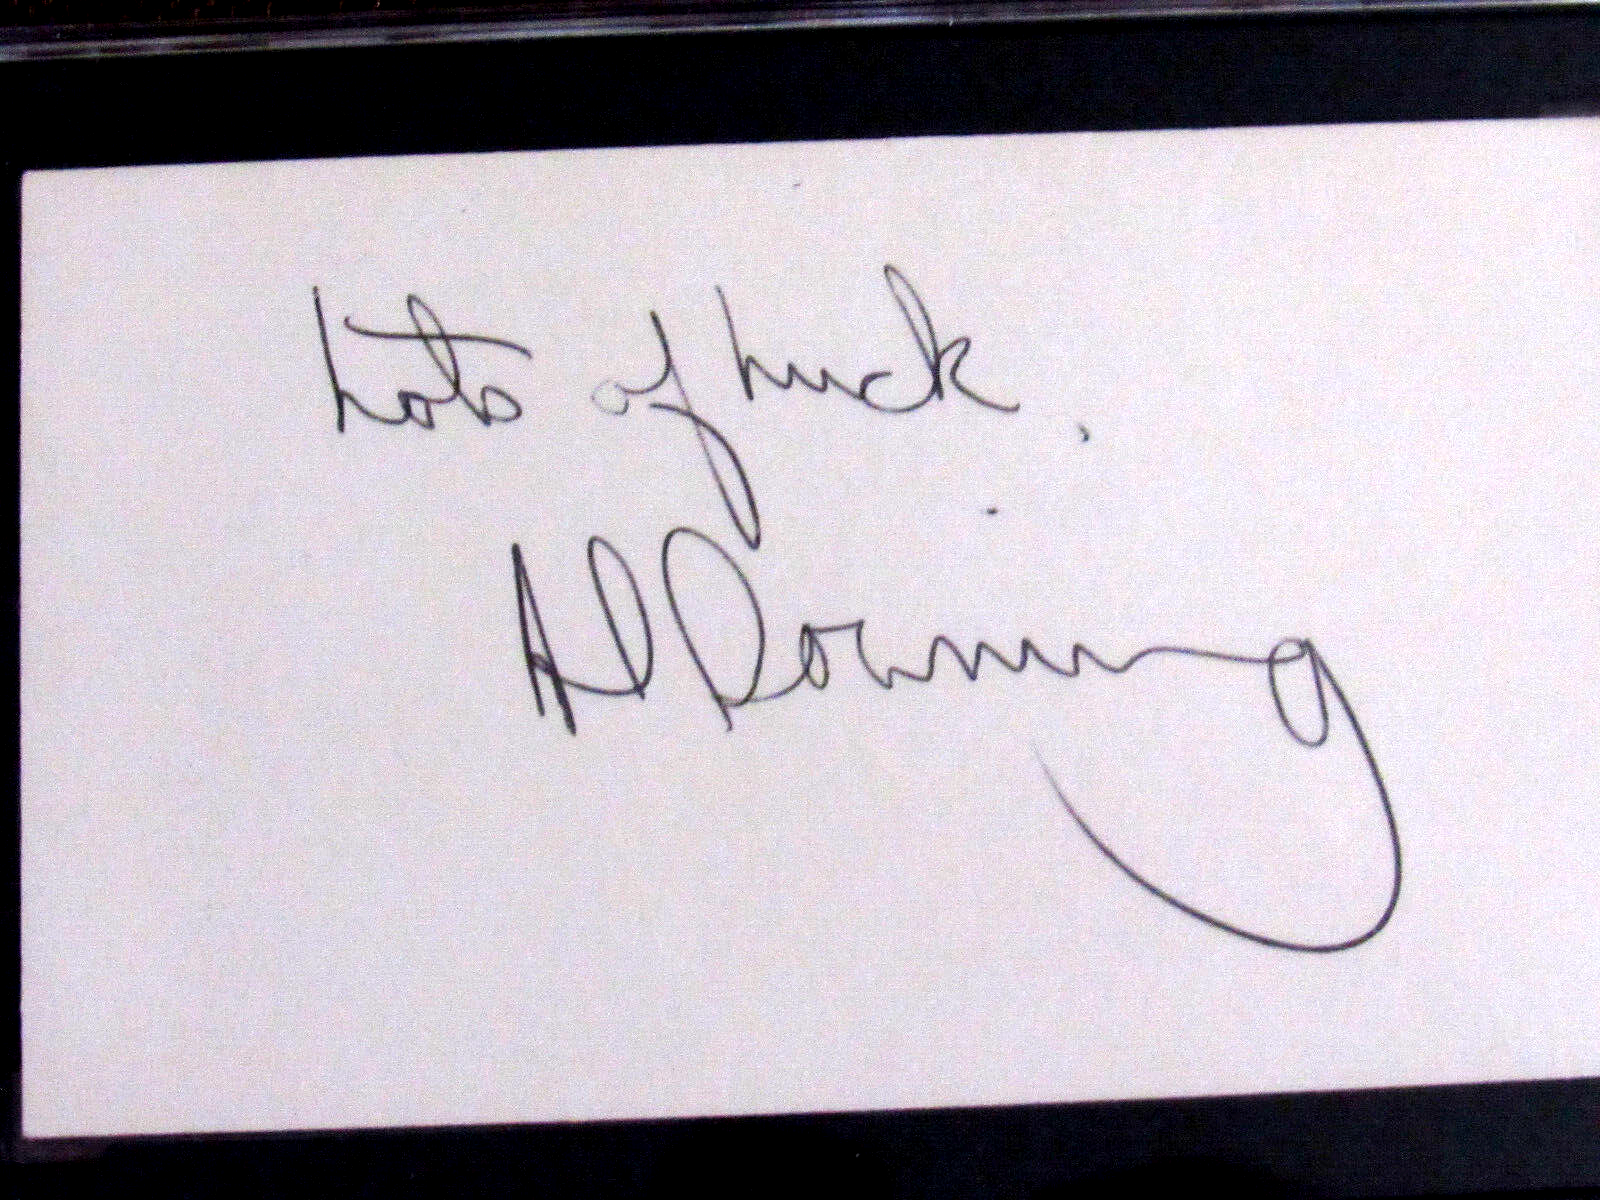 Lots of Luck.
Al Downing